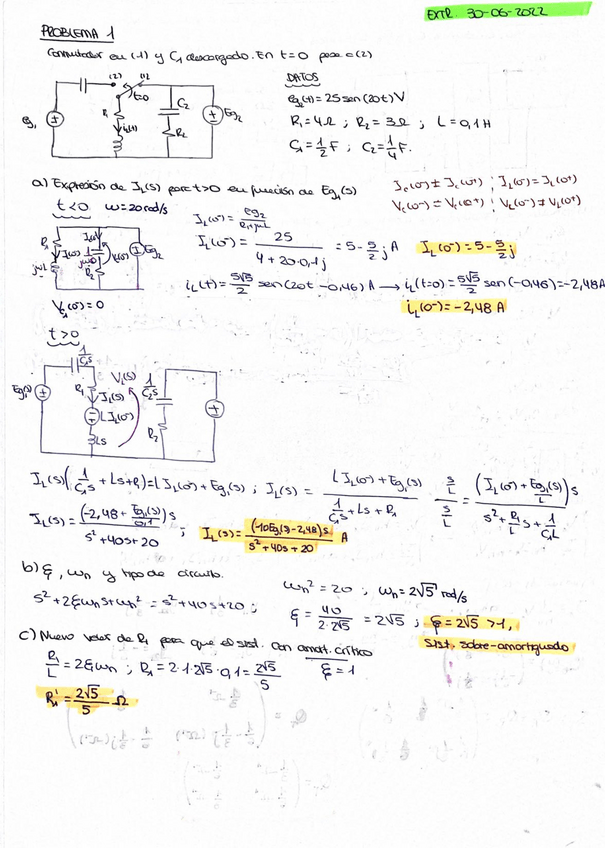 EXTR. 30-06-2022
PROBLEMA 1
Conmutador en (1) y C₁ descargado. En t=0 pasa a (2)
(2) (1)
t=0
eg₁
R₁
iL(t)
C₂
R₂
Eg₂
DATOS
eg₂(t) = 25 sen(20t) V
R₁ = 4Ω ; R₂ = 3Ω ; L = 0,1 H
C₁ = 1/2 F ; C₂ = 1/4 F.
a) Expresión de IL(s) para t>0 en función de Eg₁(s)
Ic(0⁻) ≠ Ic(0⁺) ; IL(0⁻) = IL(0⁺)
Vc(0⁻) = Vc(0⁺) ; VL(0⁻) ≠ VL(0⁺)
t<0 ω=20 rad/s
IL(0⁻) = eg₂/(R₁+jωL)
IL(0⁻) = 25/(4+20·0,1j) = 5 - 5/2 j A
IL(0⁻) = 5 - 5/2 j
iL(t) = 5√5/2 sen(20t - 0,46) A → iL(t=0) = 5√5/2 sen(-0,46) = -2,48 A
iL(0⁻) = -2,48 A
Vc₁(0⁻) = 0
t>0
1/C₁s
Eg₁(s)
R₁
IL(s)
LIL(0⁻)
Ls
VL(s)
1/C₂s
R₂
IL(s)(1/C₁s + Ls + R₁) = LIL(0⁻) + Eg₁(s) ; IL(s) = (LIL(0⁻) + Eg₁(s))/(1/C₁s + Ls + R₁) · (s/L)/(s/L) = (IL(0⁻) + Eg₁(s)/L)s/(s² + R₁/L s + 1/C₁L)
IL(s) = (-2,48 + Eg₁(s)/0,1)s/(s² + 40s + 20) ; IL(s) = (10Eg₁(s) - 2,48)s/(s² + 40s + 20) A
b) ξ, ωn y tipo de circuito.
ωn² = 20 ; ωn = 2√5 rad/s
s² + 2ξωns + ωn² = s² + 40s + 20 ;
ξ = 40/(2·2√5) = 2√5 ; ξ = 2√5 > 1,
Sist. sobre-amortiguado
c) Nuevo valor de R₁ para que el sist. con amort. crítico
ξ = 1
R₁/L = 2ξωn ; R₁ = 2·1·2√5·0,1 = 2√5/5
R₁' = 2√5/5 Ω